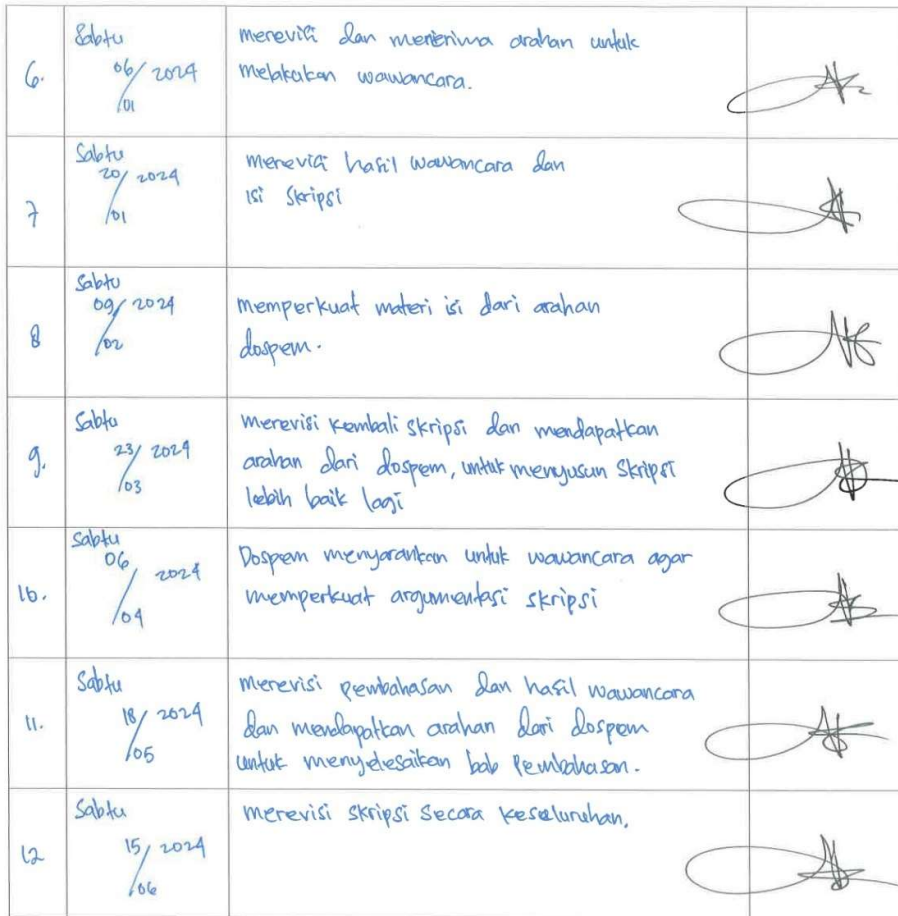 6.
Sabtu
06/2024
/01
merevisi dan menerima arahan untuk
melakukan wawancara.
7
Sabtu
20/2024
/01
merevisi hasil wawancara dan
isi skripsi
8
Sabtu
09/2024
/02
memperkuat materi isi dari arahan
dospem.
9.
Sabtu
23/2024
/03
merevisi kembali skripsi dan mendapatkan
arahan dari dospem, untuk menyusun skripsi
lebih baik lagi
10.
Sabtu
06/2024
/04
Dospem menyarankan untuk wawancara agar
memperkuat argumentasi skripsi
11.
Sabtu
18/2024
/05
merevisi pembahasan dan hasil wawancara
dan mendapatkan arahan dari dospem
untuk menyelesaikan bab pembahasan.
12
Sabtu
15/2024
/06
merevisi skripsi secara keseluruhan.